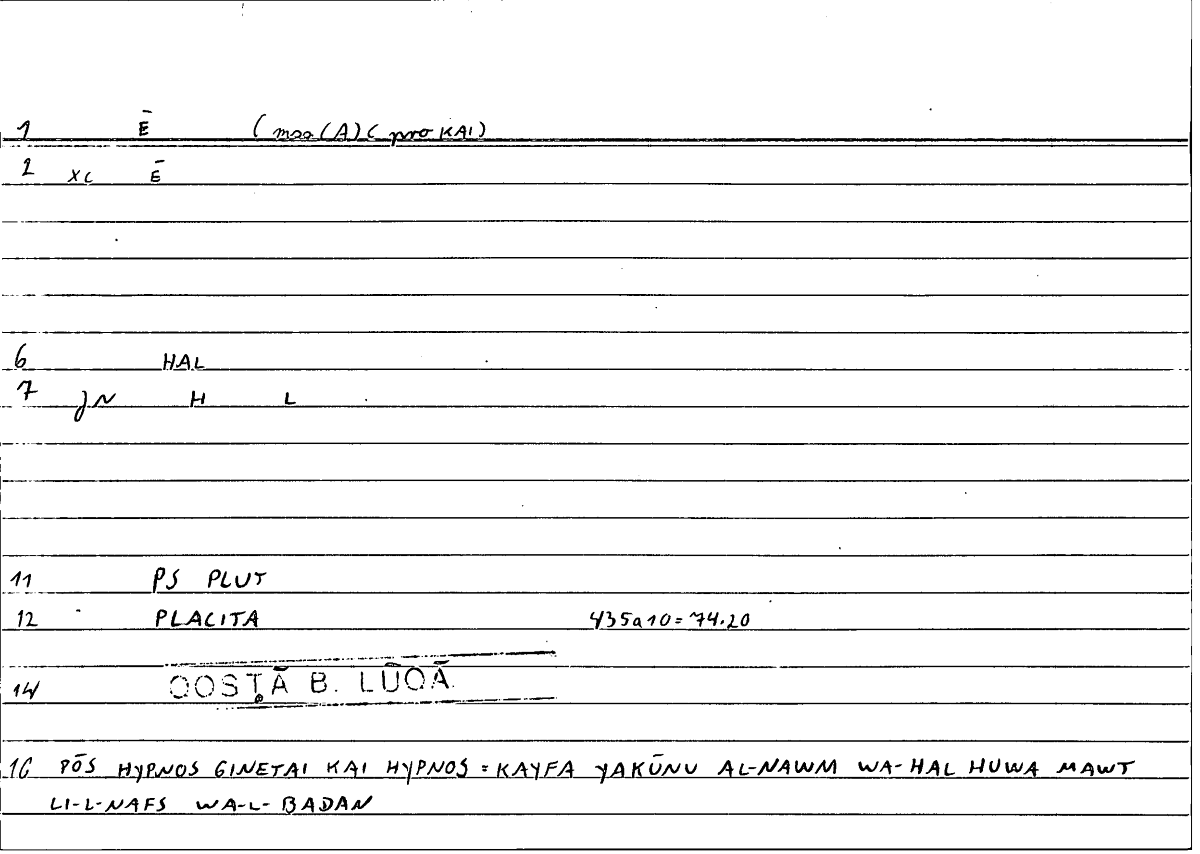 1 Ē (mss (A) ( pro KAI)
2 XC Ē
6 HAL
7 JN H L
11 PS PLUT
12 PLACITA 435a10=74.20
14 QOSṬĀ B. LŪQĀ
16 PŌS HYPNOS GINETAI KAI HYPNOS = KAYFA YAKŪNU AL-NAWM WA-HAL HUWA MAWT
LI-L-NAFS WA-L-BADAN